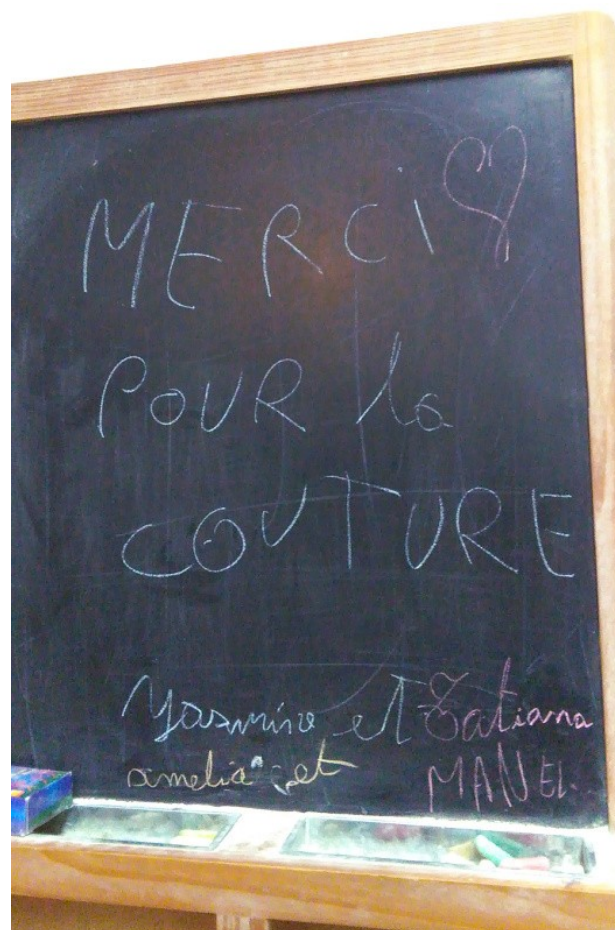 MERCi
POUR la
COUTURE
Yasmine et Tatiana
amelia et MANEL..